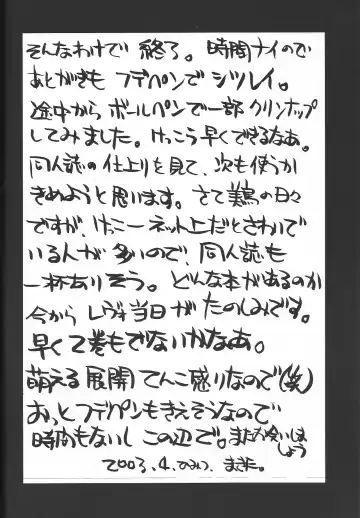 そんなわけで 終了。 時間ナイので
あとがきも フデペンで シツレイ。
途中から ボールペンで一部 クリンナップ
してみました。けっこう早くできるなあ。
同人誌の仕上りを見て、次も使うか
きめようと思います。さて美鳥の日々
ですが、けっこーネット上だとさわいで
いる人が 多いので、同人誌も
一杯ありそう。どんな本があるのか
今から レヴォ当日が たのしみです。
早く2巻もでないかなあ。
萌える展開てんこ盛りなので(笑)
おっとフデペンもきえそうなので
時間もないし この辺で。またお会いしま
しょう
2003.4.